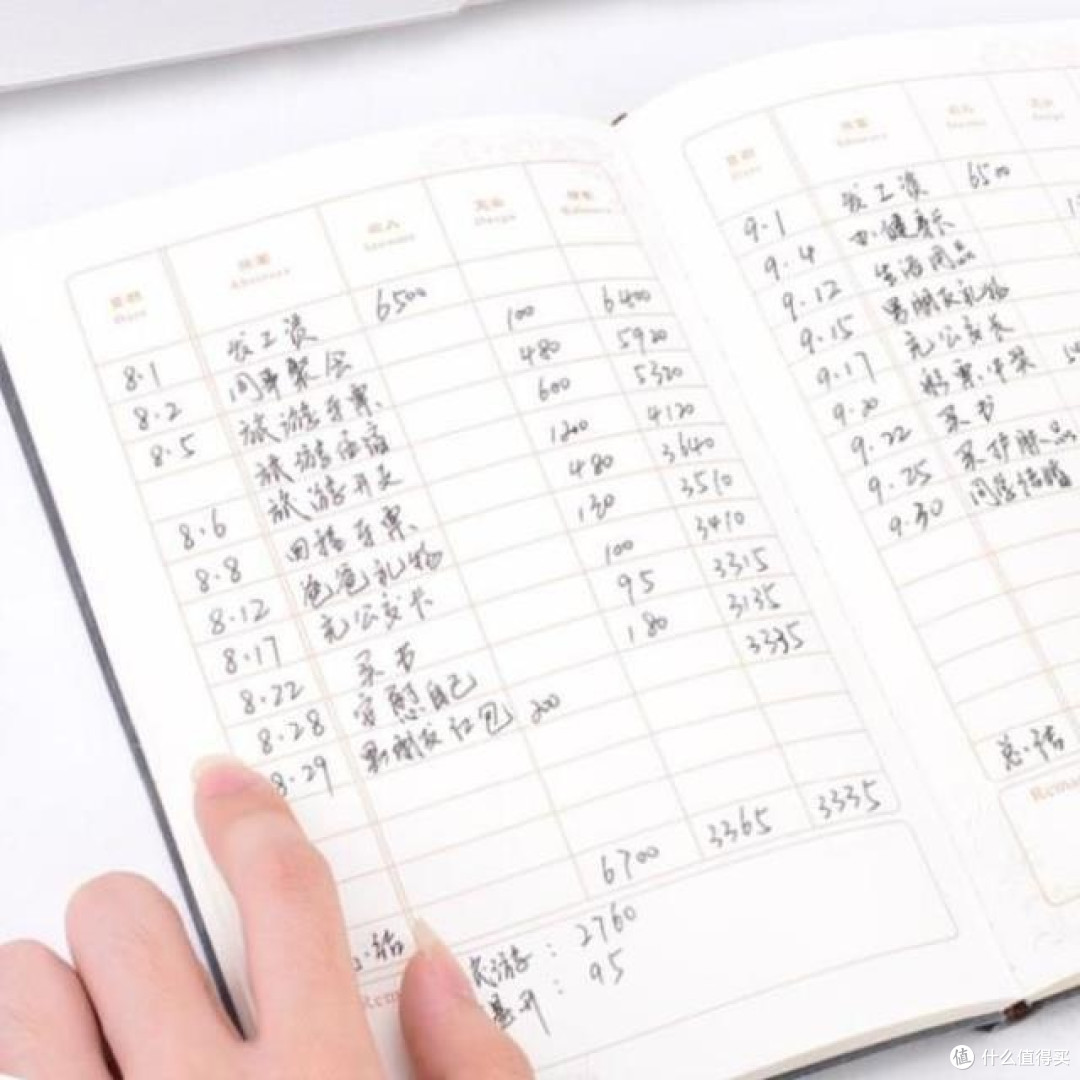 日期 摘要 收入 支出 结余
Date Abstract Income Outgo Balance
8.1 发工资 6500
8.2 同事聚会 100 6400
8.5 旅游车票 480 5920
旅游住宿 600 5320
8.6 旅游开支 1200 4120
8.8 回程车票 480 3640
8.12 爸爸礼物 130 3510
8.17 充公交卡 100 3410
8.22 买书 95 3315
8.28 安慰自己 180 3135
8.29 男朋友红包 200 3335
结 6700 3365 3335
Rem
游: 2760
: 95
日期 摘要 收入 支出
9.1 发工资 6500
9.4 办健身卡
9.12 生活用品
9.15 男朋友礼物
9.17 充公交卡
9.20 彩票中奖
9.22 买书
9.25 买护肤品
9.30 同学结婚
总结
Rema
值 什么值得买